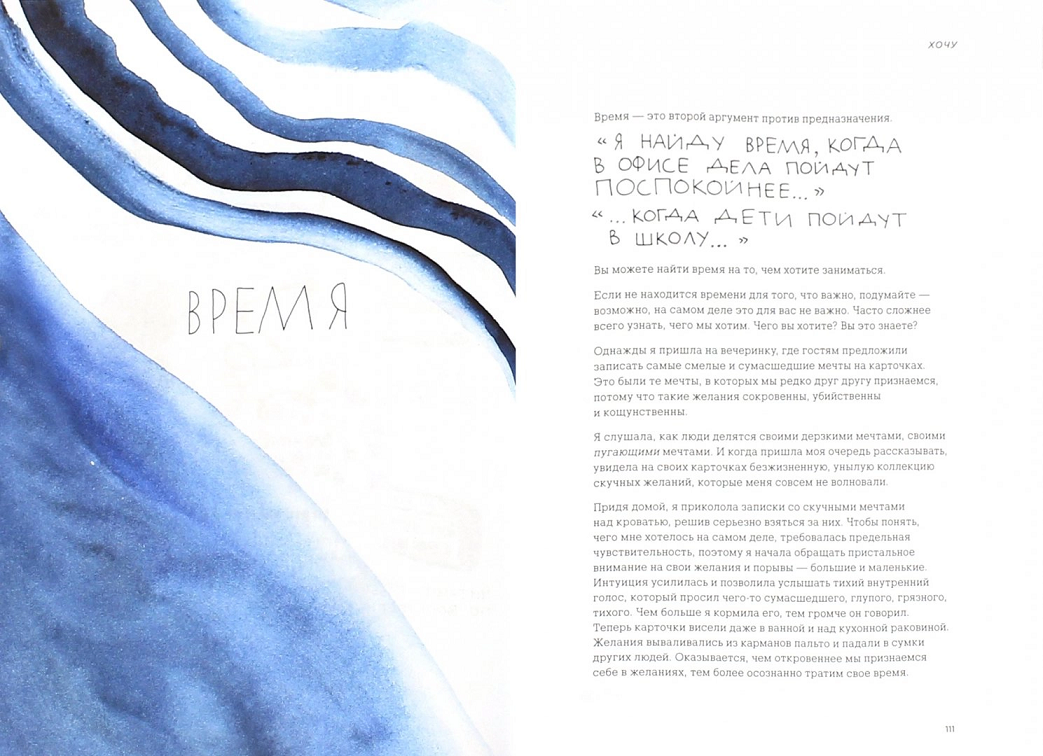 ВРЕМЯ
ХОЧУ
Время — это второй аргумент против предназначения.
« Я НАЙДУ ВРЕМЯ, КОГДА
В ОФИСЕ ДЕЛА ПОЙДУТ
ПОСПОКОЙНЕЕ... »
« ... КОГДА ДЕТИ ПОЙДУТ
В ШКОЛУ... »
Вы можете найти время на то, чем хотите заниматься.
Если не находится времени для того, что важно, подумайте —
возможно, на самом деле это для вас не важно. Часто сложнее
всего узнать, чего мы хотим. Чего вы хотите? Вы это знаете?
Однажды я пришла на вечеринку, где гостям предложили
записать самые смелые и сумасшедшие мечты на карточках.
Это были те мечты, в которых мы редко друг другу признаемся,
потому что такие желания сокровенны, убийственны
и кощунственны.
Я слушала, как люди делятся своими дерзкими мечтами, своими
пугающими мечтами. И когда пришла моя очередь рассказывать,
увидела на своих карточках безжизненную, унылую коллекцию
скучных желаний, которые меня совсем не волновали.
Придя домой, я приколола записки со скучными мечтами
над кроватью, решив серьезно взяться за них. Чтобы понять,
чего мне хотелось на самом деле, требовалась предельная
чувствительность, поэтому я начала обращать пристальное
внимание на свои желания и порывы — большие и маленькие.
Интуиция усилилась и позволила услышать тихий внутренний
голос, который просил чего-то сумасшедшего, глупого, грязного,
тихого. Чем больше я кормила его, тем громче он говорил.
Теперь карточки висели даже в ванной и над кухонной раковиной.
Желания вываливались из карманов пальто и падали в сумки
других людей. Оказывается, чем откровеннее мы признаемся
себе в желаниях, тем более осознанно тратим свое время.
111